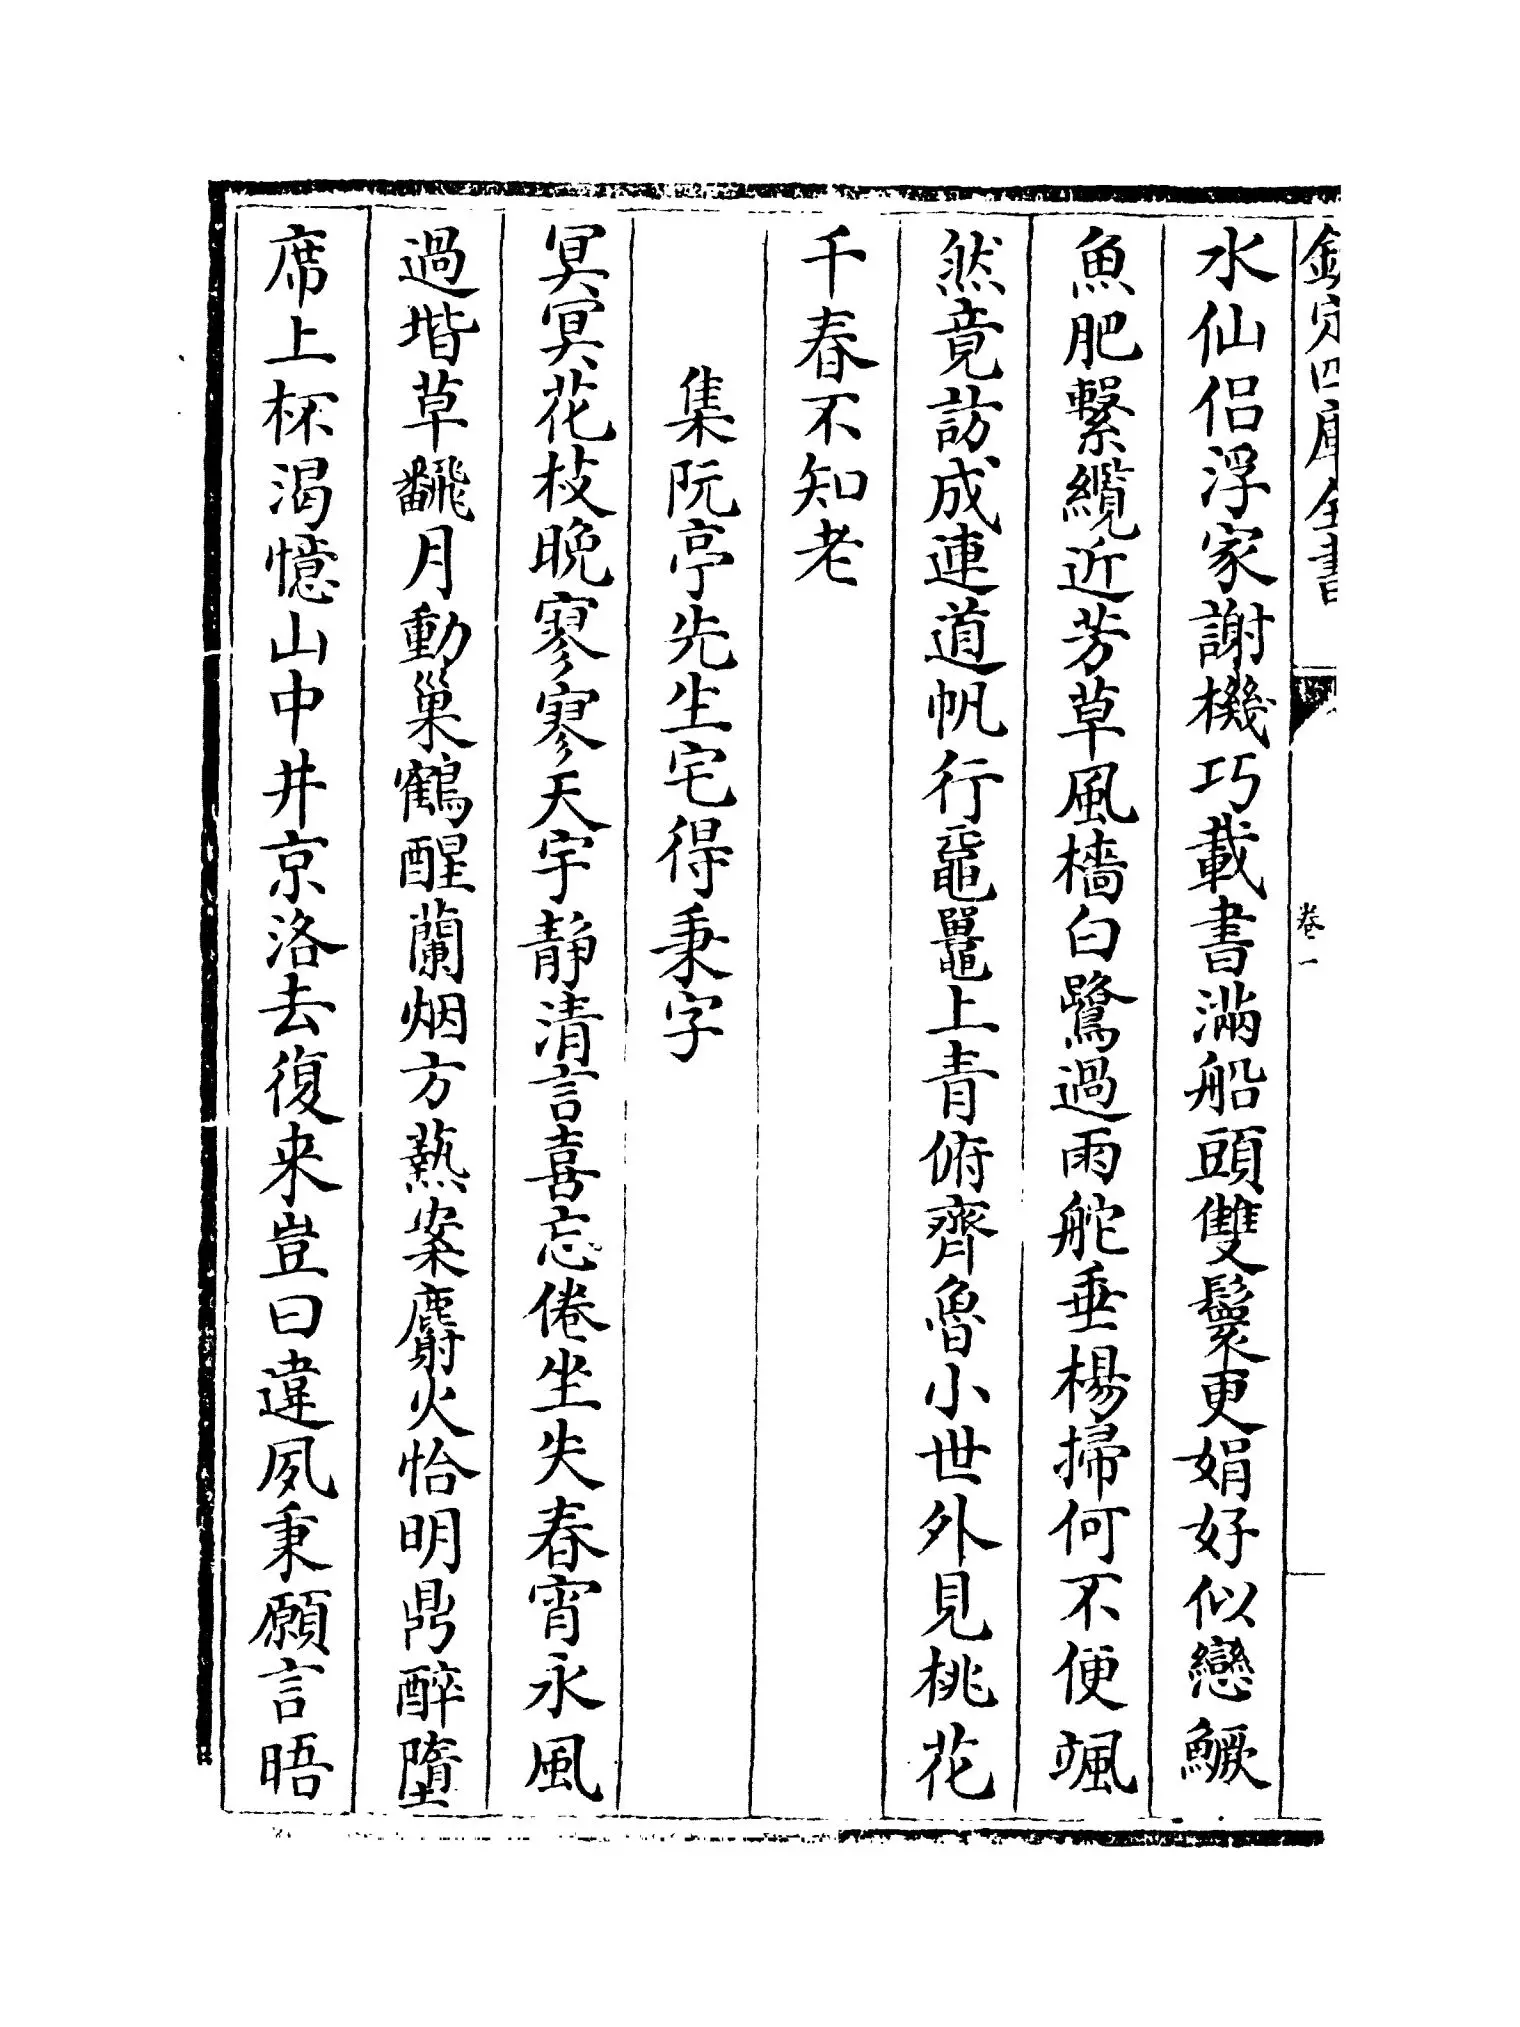 欽定四庫全書
卷一
水仙侣浮家謝機巧載書滿船頭雙鬟更娟好似戀鱖
魚肥繫纜近芳草風檣白鷺過雨舵垂楊掃何不便颯
然竟訪成連道帆行黿鼉上青俯齊魯小世外見桃花
千春不知老
集阮亭先生宅得秉字
冥冥花枝晚寥寥天宇静清言喜忘倦坐失春宵永風
過堦草飜月動巢鶴醒蘭烟方爇案麝火怡明鼎醉墮
席上杯渴憶山中井京洛去復来豈曰違夙秉願言晤